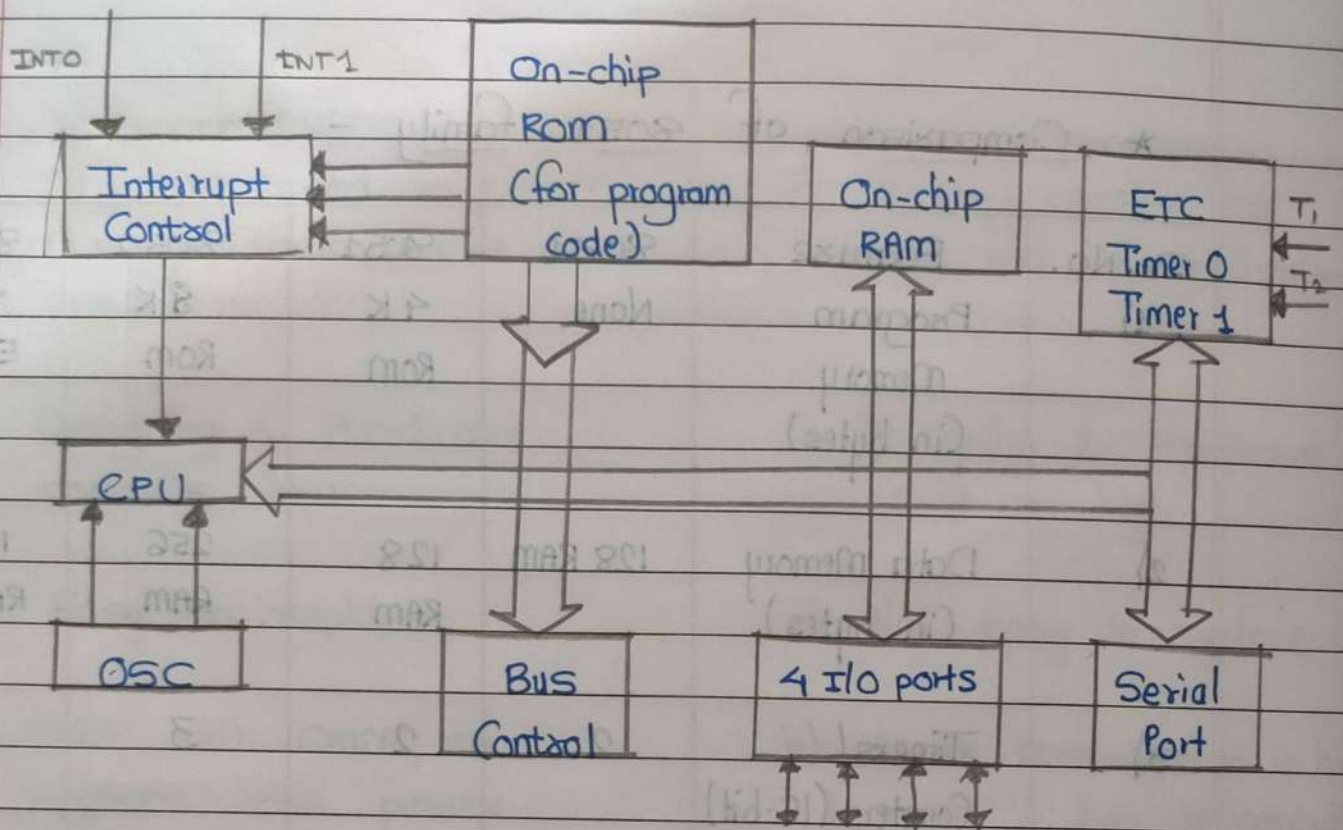 INT0
INT1
On-chip
ROM
(for program
code)
Interrupt
Control
On-chip
RAM
ETC
Timer 0
Timer 1
T₁
T₂
CPU
OSC
Bus
Control
4 I/O ports
Serial
Port